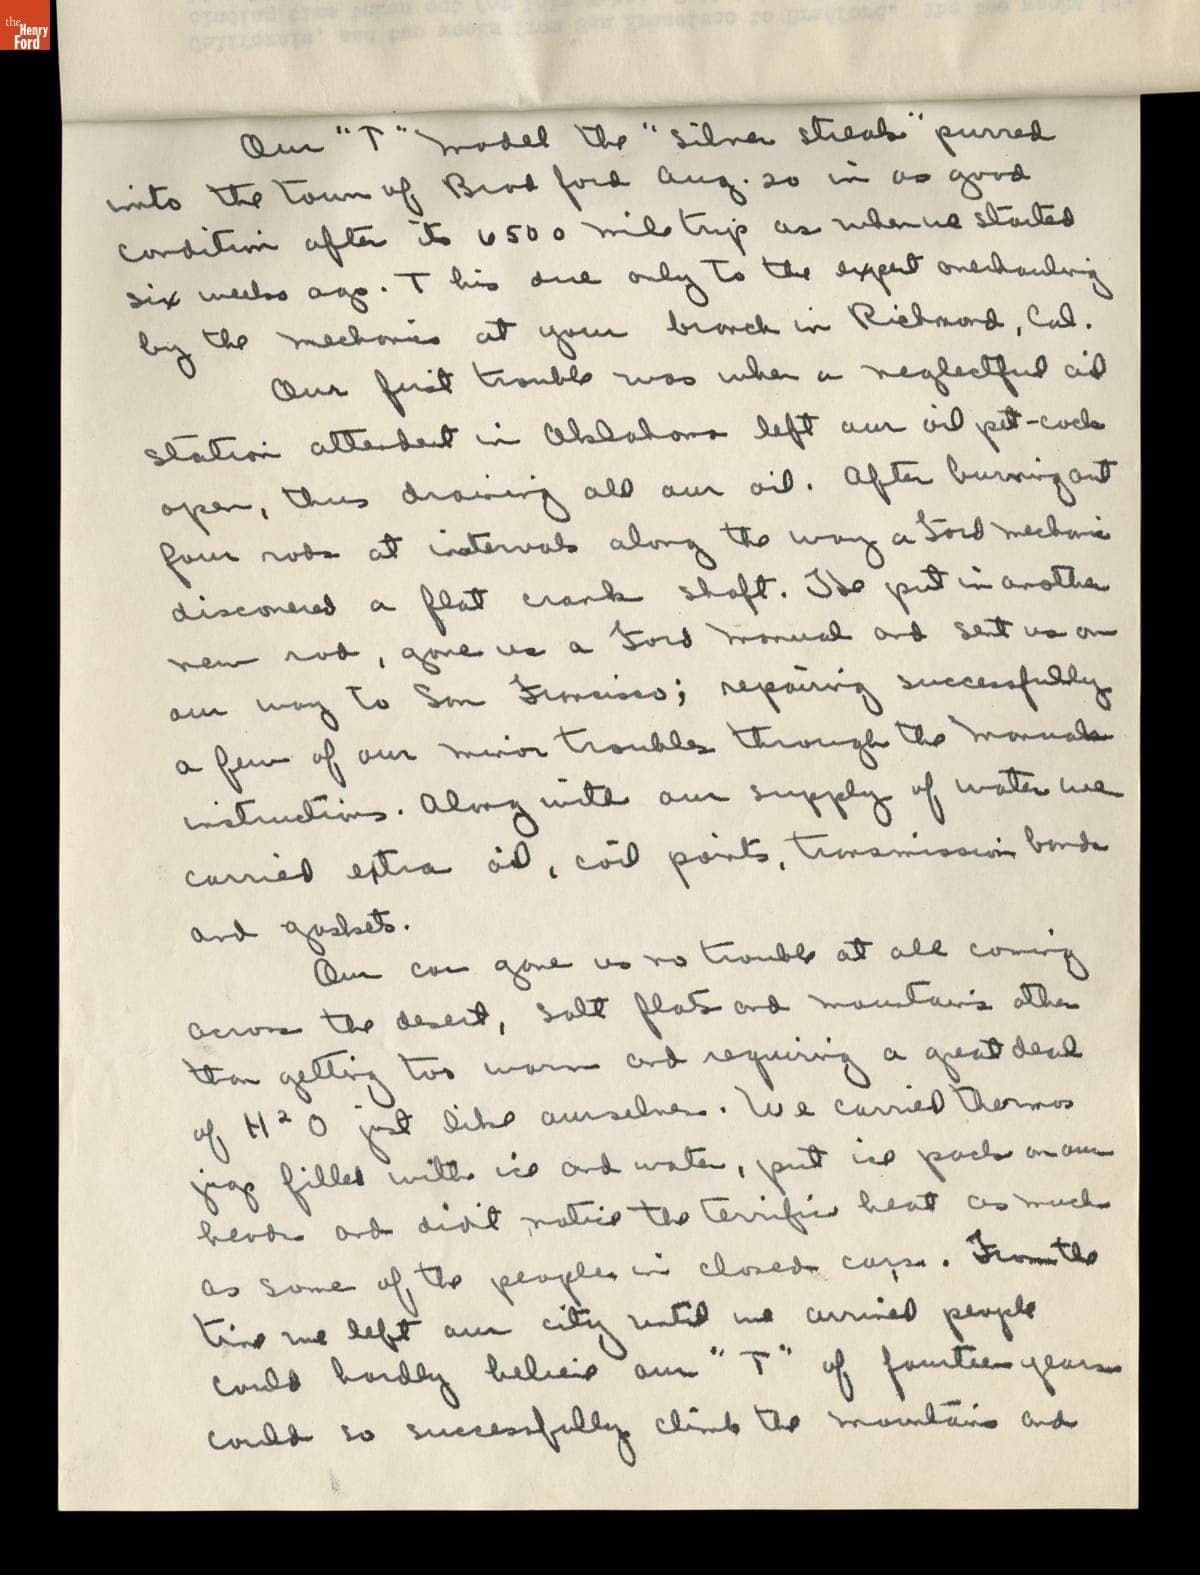 the
Henry
Ford
Our "T" model the "silver streak" purred
into the town of Bradford Aug. 20 in as good
condition after its 6500 mile trip as when we started
six weeks ago. This due only to the expert overhauling
by the mechanics at your branch in Richmond, Cal.
Our first trouble was when a neglectful oil
station attendent in Oklahoma left our oil pet-cock
open, thus draining all our oil. After burning out
four rods at intervals along the way a Ford mechanic
discovered a flat crank shaft. He put in another
new rod, gave us a Ford manual and sent us on
our way to San Francisco; repairing successfully
a few of our minor troubles through the manuals
instructions. Along with our supply of water we
carried extra oil, coil points, transmission bands
and gaskets.
Our car gave us no trouble at all coming
across the desert, salt flats and mountains other
than getting too warm and requiring a great deal
of H²O just like ourselves. We carried thermos
jugs filled with ice and water, put ice packs on our
heads and didn't notice the terrific heat as much
as some of the people in closed cars. From the
time we left our city until we arrived people
could hardly believe our "T" of fourteen years
could so successfully climb the mountains and